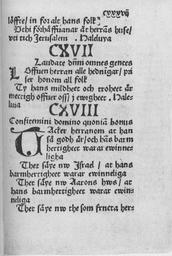 cxxxvij
löffte/ in for ale hans folk
Vthi forhåffuanar åt herrans huse/
vti tich Jerusalem Haleluia
CXVII
Laudate dnm omnes gentes
Löffuen herran alle hedningar/ pri
ser honom all folk
Ty hans mildheet och troheet är
mectigh offuer oss/ j ewigheet. Hale
luia
CXVIII
Confitemini domino quoniā bonus
Tacker herranom at han
så godh är/ och hans barm
herrigheet warar ewinne
ligha
Thet säye nw Israel/ at hans
barmherrigheet warar ewinneliga
Thet säye nw Aarons hws/ at
hans barmherrigheet warar ewin
neliga
Thet säye nw the som fructa herra